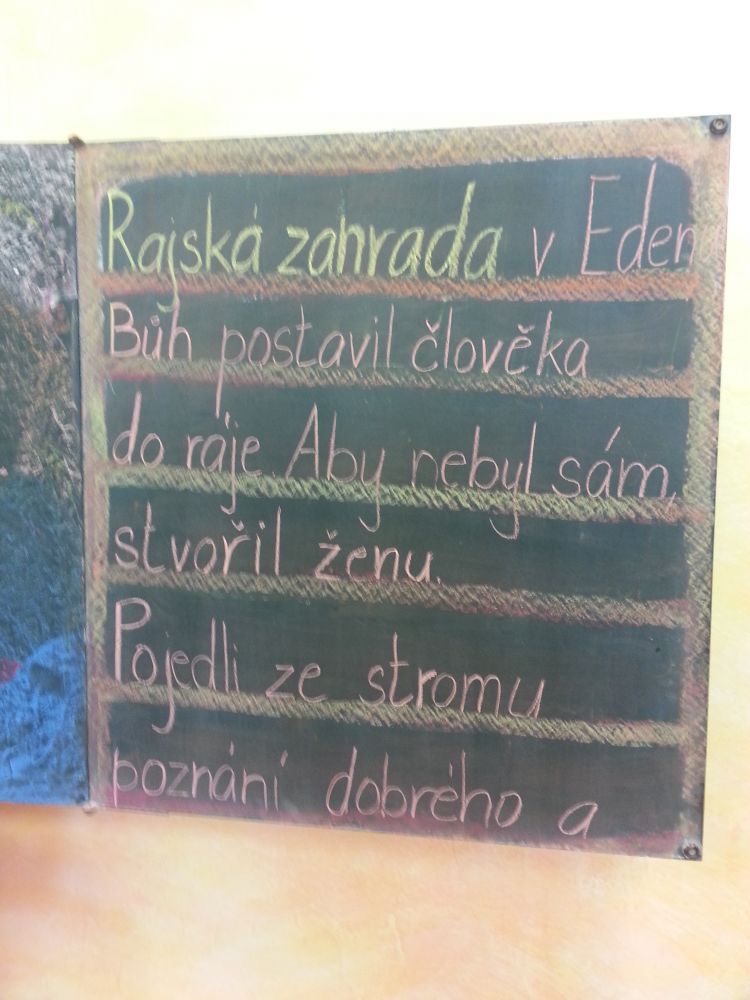 Rajská zahrada v Eden
Bůh postavil člověka
do ráje. Aby nebyl sám,
stvořil ženu.
Pojedli ze stromu
poznání dobrého a